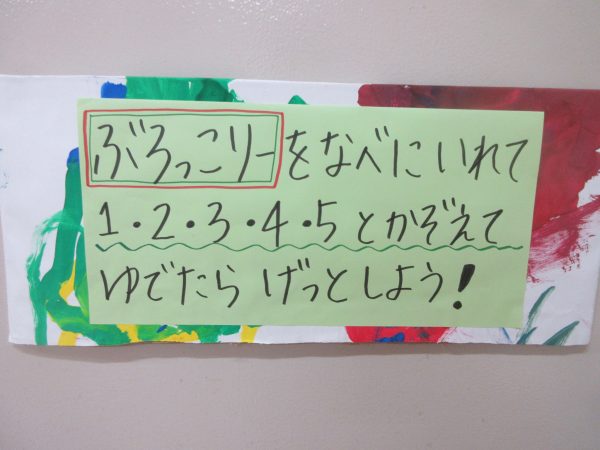 ぶろっこりーをなべにいれて
1・2・3・4・5とかぞえて
ゆでたらげっとしよう!